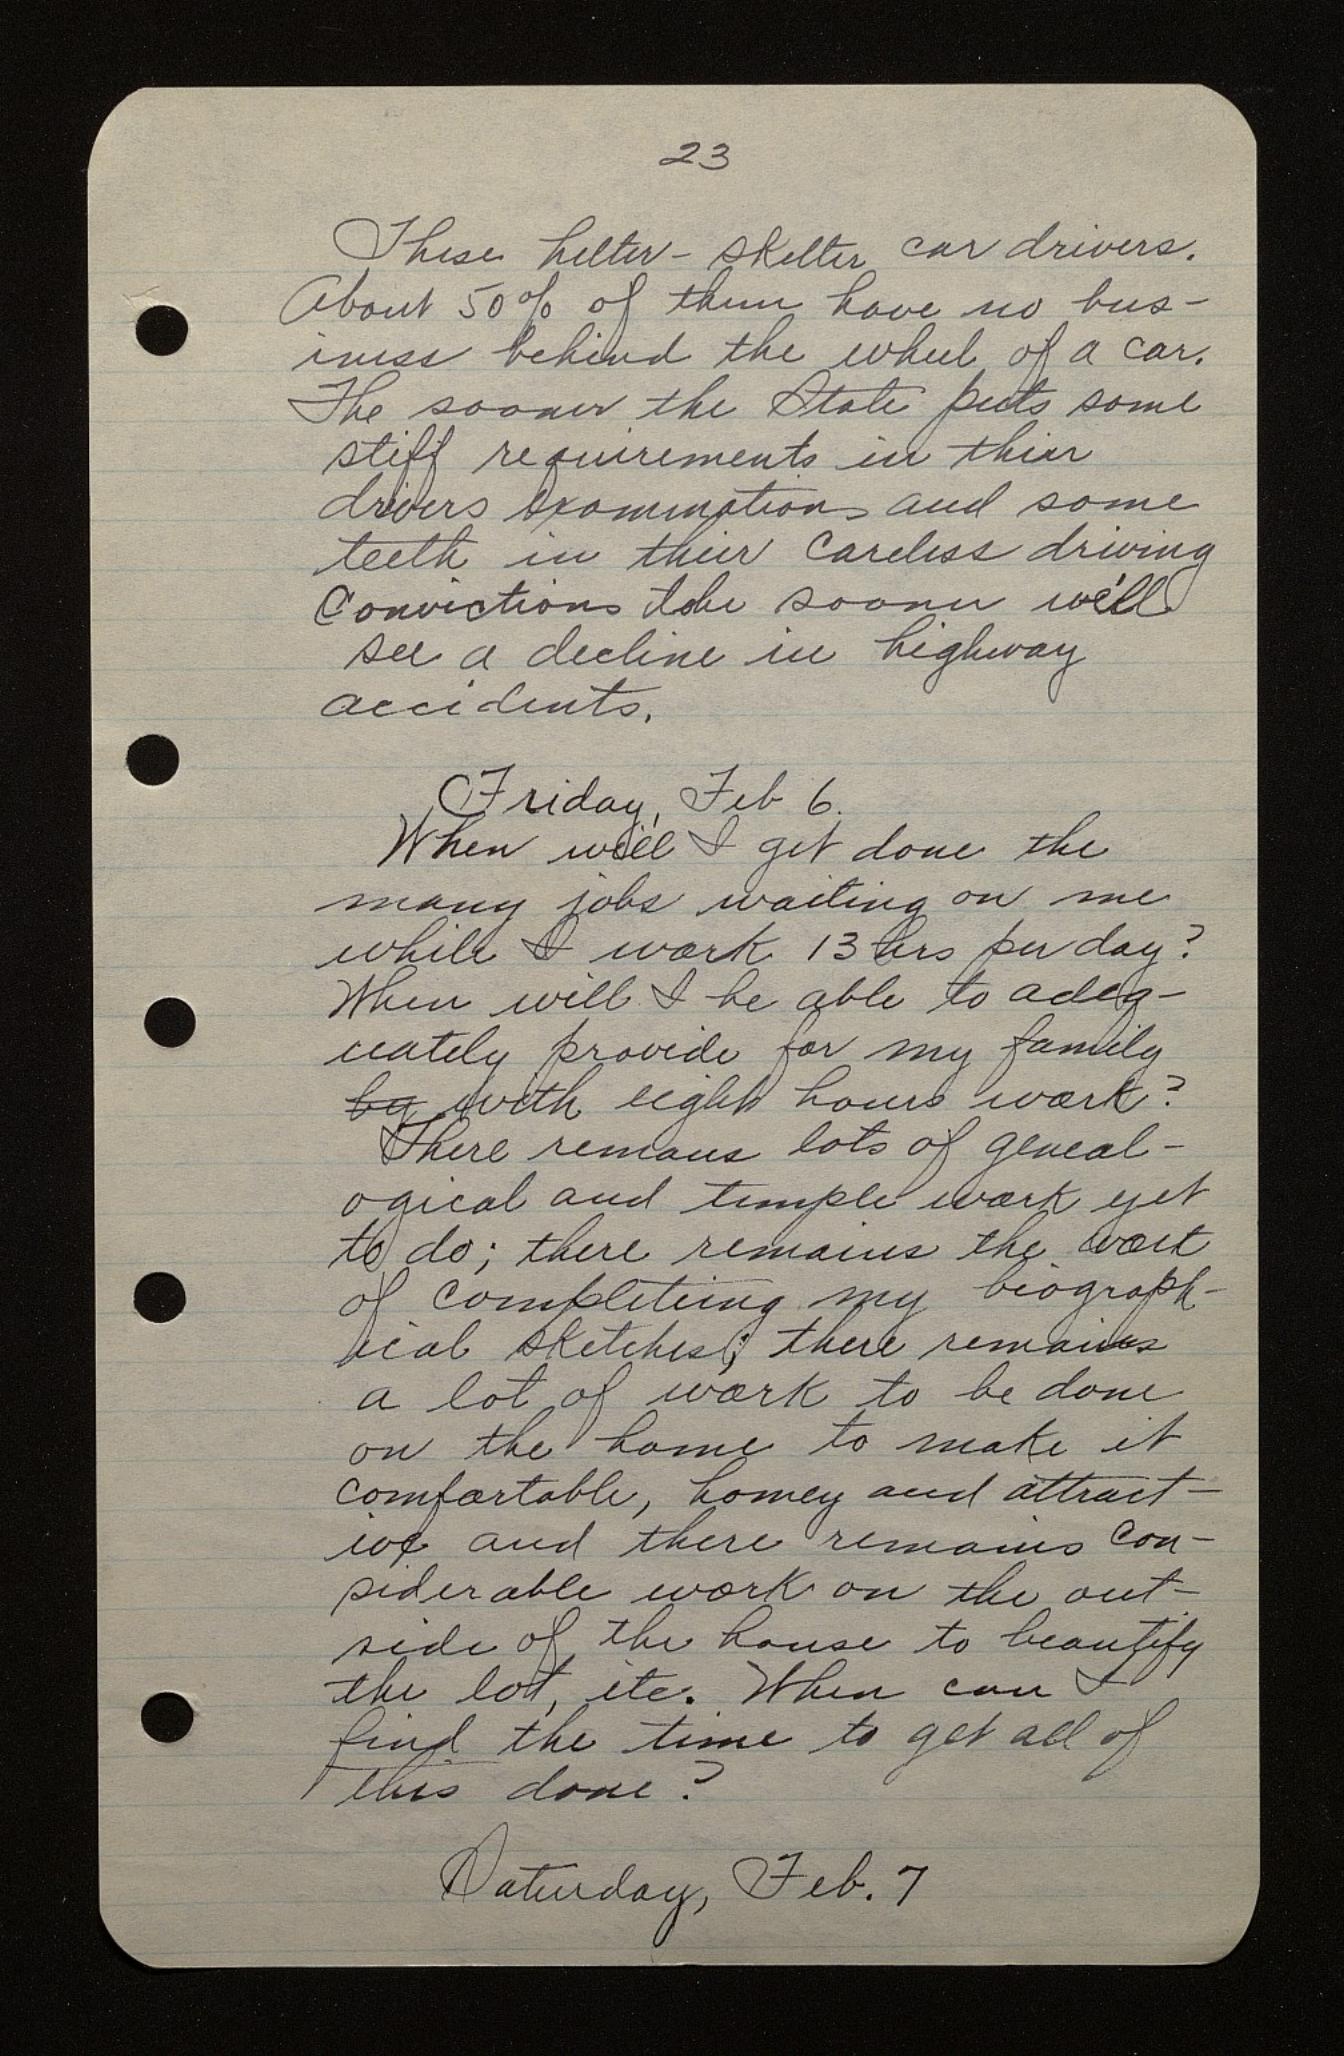 23
These helter-skelter car drivers.
About 50% of them have no bus-
iness behind the wheel of a car.
The sooner the State puts some
stiff requirements in their
drivers examinations and some
teeth in their careless driving
convictions the sooner we'll
see a decline in highway
accidents.
Friday, Feb 6.
When will I get done the
many jobs waiting on me
while I work 13 hrs per day?
When will I be able to adeq-
uately provide for my family
by with eight hours work?
There remans lots of geneal-
ogical and temple work yet
to do; there remains the work
of completeing my biograph-
ical sketches; there remains
a lot of work to be done
on the home to make it
comfortable, homey and attract-
ive and there remains con-
siderable work on the out-
side of the house to beautify
the lot, etc. When can I
find the time to get all of
this done?
Saturday, Feb. 7